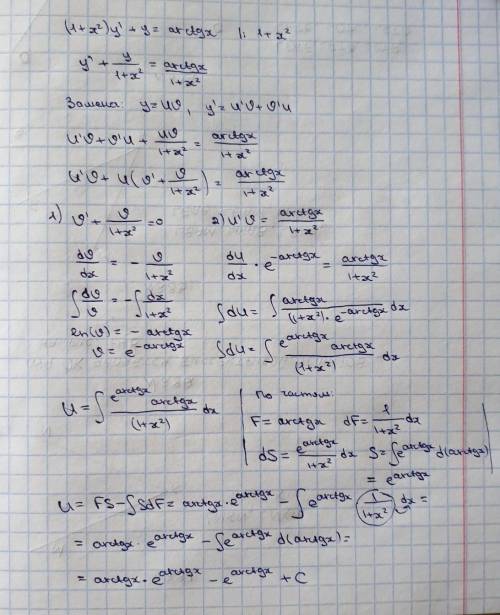 (1+x²)y' + y = arctgx |: 1+x²
y' + y/(1+x²) = arctgx/(1+x²)
Замена: y=Uϑ, y'=U'ϑ+ϑ'U
U'ϑ+ϑ'U + Uϑ/(1+x²) = arctgx/(1+x²)
U'ϑ + U(ϑ' + ϑ/(1+x²)) = arctgx/(1+x²)
1) ϑ' + ϑ/(1+x²) = 0
dϑ/dx = - ϑ/(1+x²)
∫dϑ/ϑ = -∫dx/(1+x²)
ln(ϑ) = - arctgx
ϑ = e^(-arctgx)
2) U'ϑ = arctgx/(1+x²)
dU/dx · e^(-arctgx) = arctgx/(1+x²)
∫dU = ∫ arctgx/((1+x²)·e^(-arctgx)) dx
∫dU = ∫ e^(arctgx) arctgx/(1+x²) dx
U = ∫ e^(arctgx) arctgx/(1+x²) dx
По частям:
F = arctgx dF = 1/(1+x²) dx
dS = e^(arctgx)/(1+x²) dx S = ∫e^(arctgx) d(arctgx)
= e^(arctgx)
U = FS-∫SdF = arctgx·e^(arctgx) - ∫e^(arctgx) 1/(1+x²) dx =
= arctgx · e^(arctgx) - ∫e^(arctgx) d(arctgx) =
= arctgx · e^(arctgx) - e^(arctgx) + C